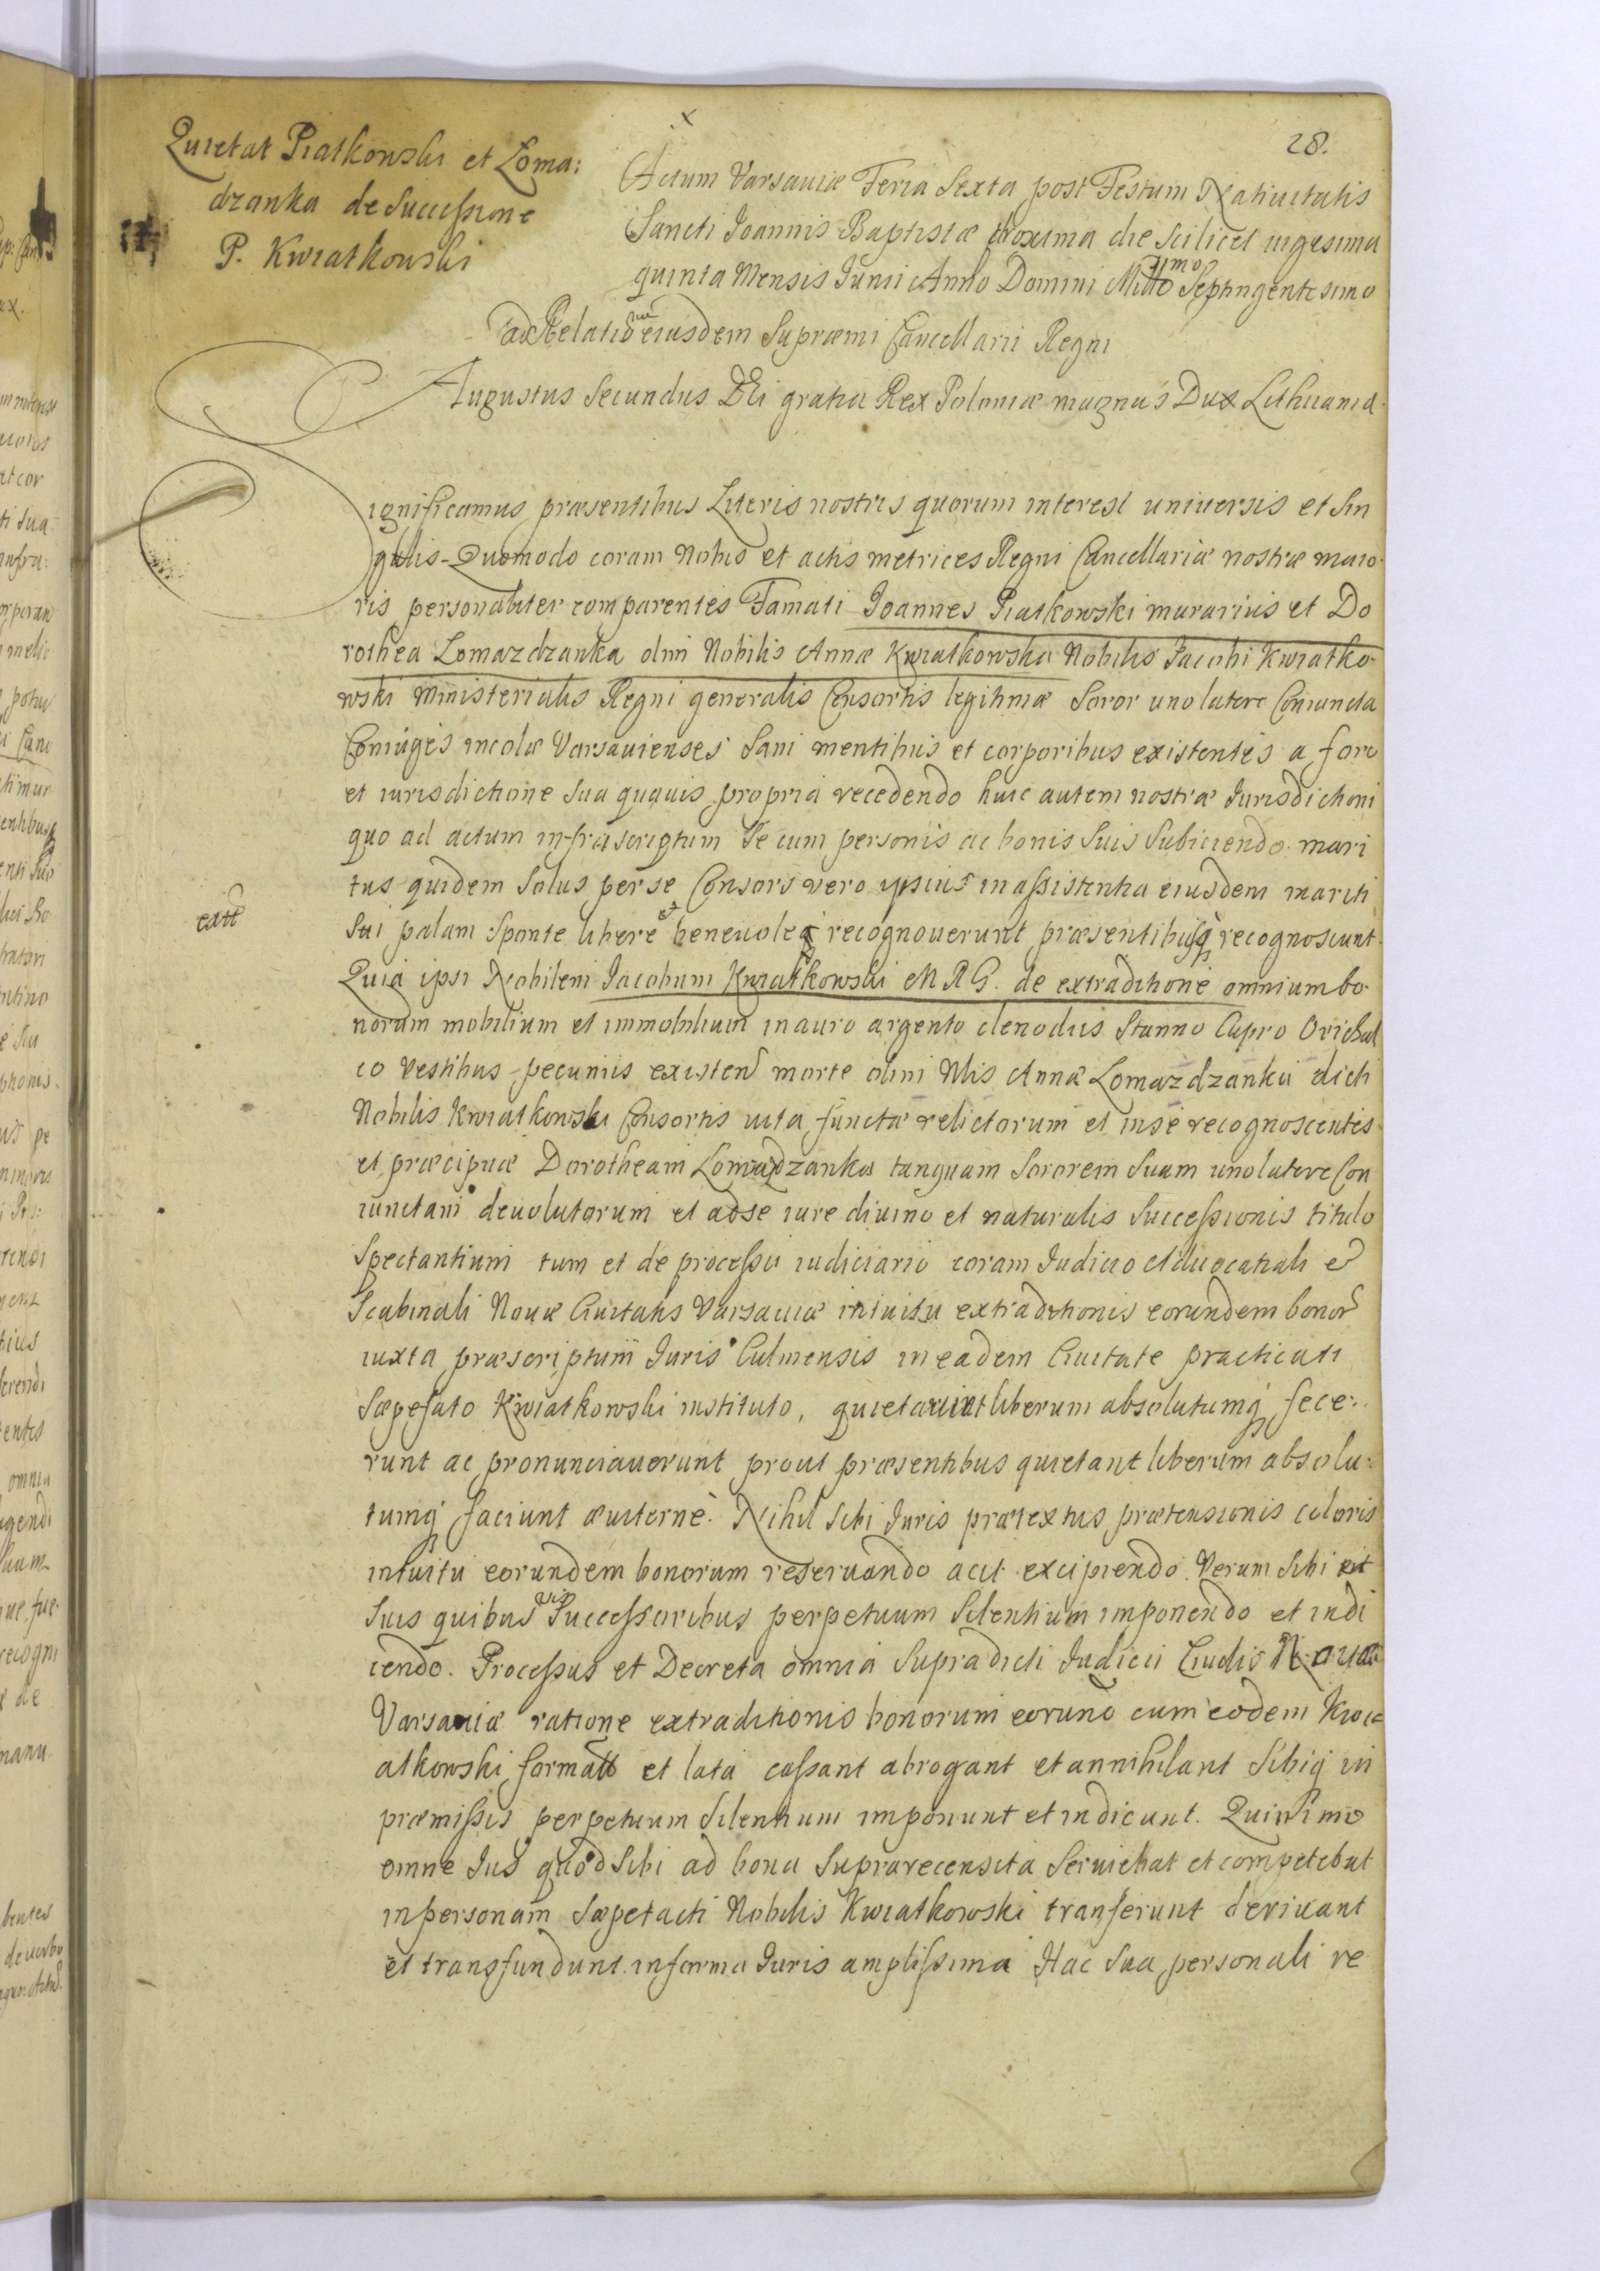 28.
Quietat Piatkowski et Loma:
dzanka de Successione
P. Kwiatkowski
Actum Varsaviæ Feria Sexta post Festum Nativitatis
Sancti Joannis Baptistæ proxima die scilicet vigesima
quinta Mensis Junii Anno Domini Millmo Septingentesimo
ad Relatio ejusdem Supræmi Cancellarii Regni
Augustus Secundus DEi gratia Rex Poloniæ magnus Dux Lithuaniæ
Significamus præsentibus Literis nostris quorum interest universis et Sin
gulis Quomodo coram Nobis et actis metrices Regni Cancellariæ nostræ maio
ris personaliter comparentes Famati Joannes Piatkowski murarius et Do
rothea Lomazdzanka olim Nobilis Annæ Kwiatkowska Nobilis Jacobi Kwiatko
wski Ministerialis Regni generalis Consortis legitimæ Soror uno latere Coniuncta
Coniuges incolæ Varsavienses Sani mentibus et corporibus existentes a foro
et iurisdictione sua quavis propria recedendo huic autem nostræ Jurisdictioni
quo ad actum infrascriptum Se cum personis ac bonis Suis Subiiciendo mari
tus quidem Solus per se Consors vero ipsius in assistentia eiusdem mariti
Sui palam Sponte libere et benevoleq recognoverunt præsentibusq recognoscunt
Quia ipsi Nobilem Jacobum Kwiatkowski M R G. de extraditione omnium bo
norum mobilium et immobilium in auro argento clenodiis Stanno Cupro Orichal
co Vestibus pecuniis existen morte olim Nlis Annæ Lomazdzanka dicti
Nobilis Kwiatkowski Consortis vita functæ relictorum et in se recognoscentes
et præcipuæ Dorotheam Lomazdzanka tanquam Sororem Suam uno latere Con
iunctam devolutorum et ad se iure divino et naturalis Successionis titulo
Spectantium tum et de processu iudiciario coram Judicio Advocatiali et
Scabinali Novæ Civitatis Varsaviæ intuitu extraditionis eorundem bonor
iuxta præscriptum Juris Culmensis in eadem Civitate practicati
Sæpefato Kwiatkowski instituto, quietarunt liberum absolutumq fece:
runt ac pronunciaverunt prout præsentibus quietant liberum absolu:
tumq faciunt æviternè. Nihil Sibi Juris prætextus prætensionis coloris
intuitu eorundem bonorum reservando aut excipiendo. Verum Sibi et
Suis quibusvis Successoribus perpetuum Silentium imponendo et indi
cendo. Processus et Decreta omnia Supradicti Judicii Civilis Novæ
Varsaviæ ratione extraditionis bonorum eorund cum eodem Kwia
atkowski format et lata cassant abrogant et annihilant Sibiq in
præmissis perpetuum Silentium imponunt et indicunt. Quinimo
omne Jus quod Sibi ad bona Suprarecensita Serviebat et competebat
in personam Sæpetacti Nobilis Kwiatkowski transferunt derivant
et transfundunt in forma Juris amplissima Hac Sua personali re